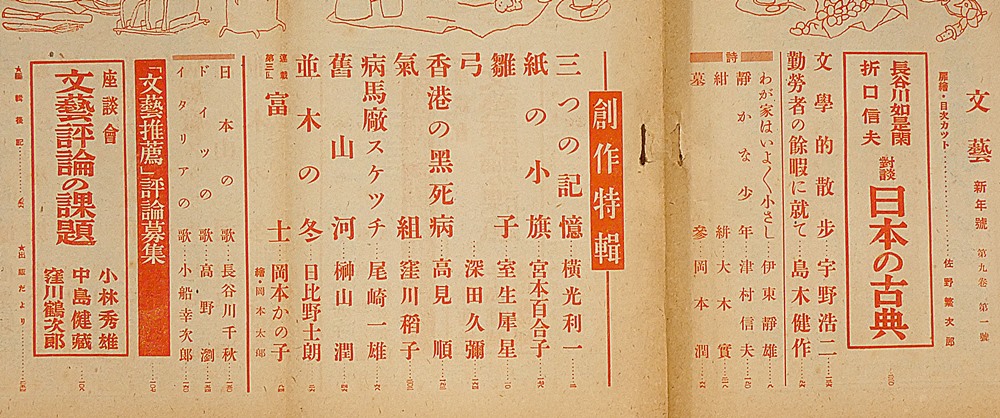 文藝 新年號 第九卷 第一號
扉繪・目次カット 佐野繁次郎
長谷川如是閑
折口信夫
對談 日本の古典
文學的散步 宇野浩二
勤勞者の餘暇に就て 島木健作
詩
わが家はいよ〱小さし 伊東靜雄
靜かな少年 津村信夫
紺緋 大木實
墓參 岡本潤
創作特輯
三つの記憶 橫光利一
紙の小旗 宮本百合子
雛子 室生犀星
弓 深田久彌
香港の黑死病 高見順
氣組 窪川稻子
病馬廠スケッチ 尾崎一雄
舊山河 榊山潤
並木の冬 日比野士朗
連載 第三回 富士 岡本かの子
繪・岡本太郎
日本の歌 長谷川千秋
ドイツの歌 高野瀏
イタリアの歌 小船幸次郎
「文藝推薦」評論募集
座談會
文藝評論の課題
小林秀雄
中島健藏
窪川鶴次郎
★編輯後記
★出版だより